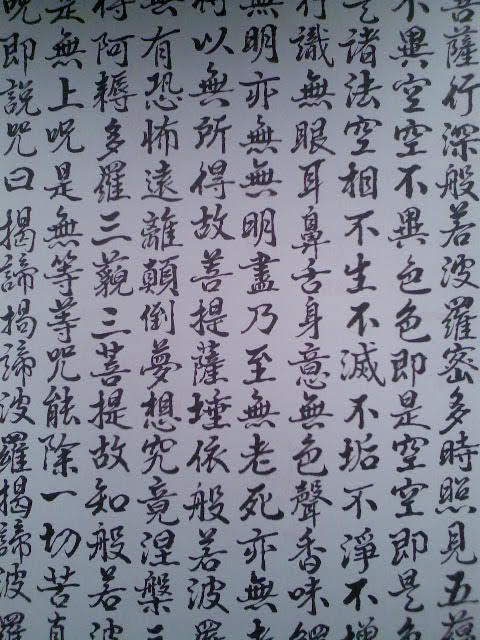 菩薩行深般若波羅密多時照見五蘊
不異空空不異色色即是空空即是色
是諸法空相不生不滅不垢不淨不增
行識無眼耳鼻舌身意無色聲香味觸
無明亦無無明盡乃至無老死亦無老
以無所得故菩提薩埵依般若波羅
無有恐怖遠離顛倒夢想究竟涅槃三
得阿耨多羅三藐三菩提故知般若波
是無上呪是無等等呪能除一切苦真
呪即說咒曰揭諦揭諦波羅揭諦波羅